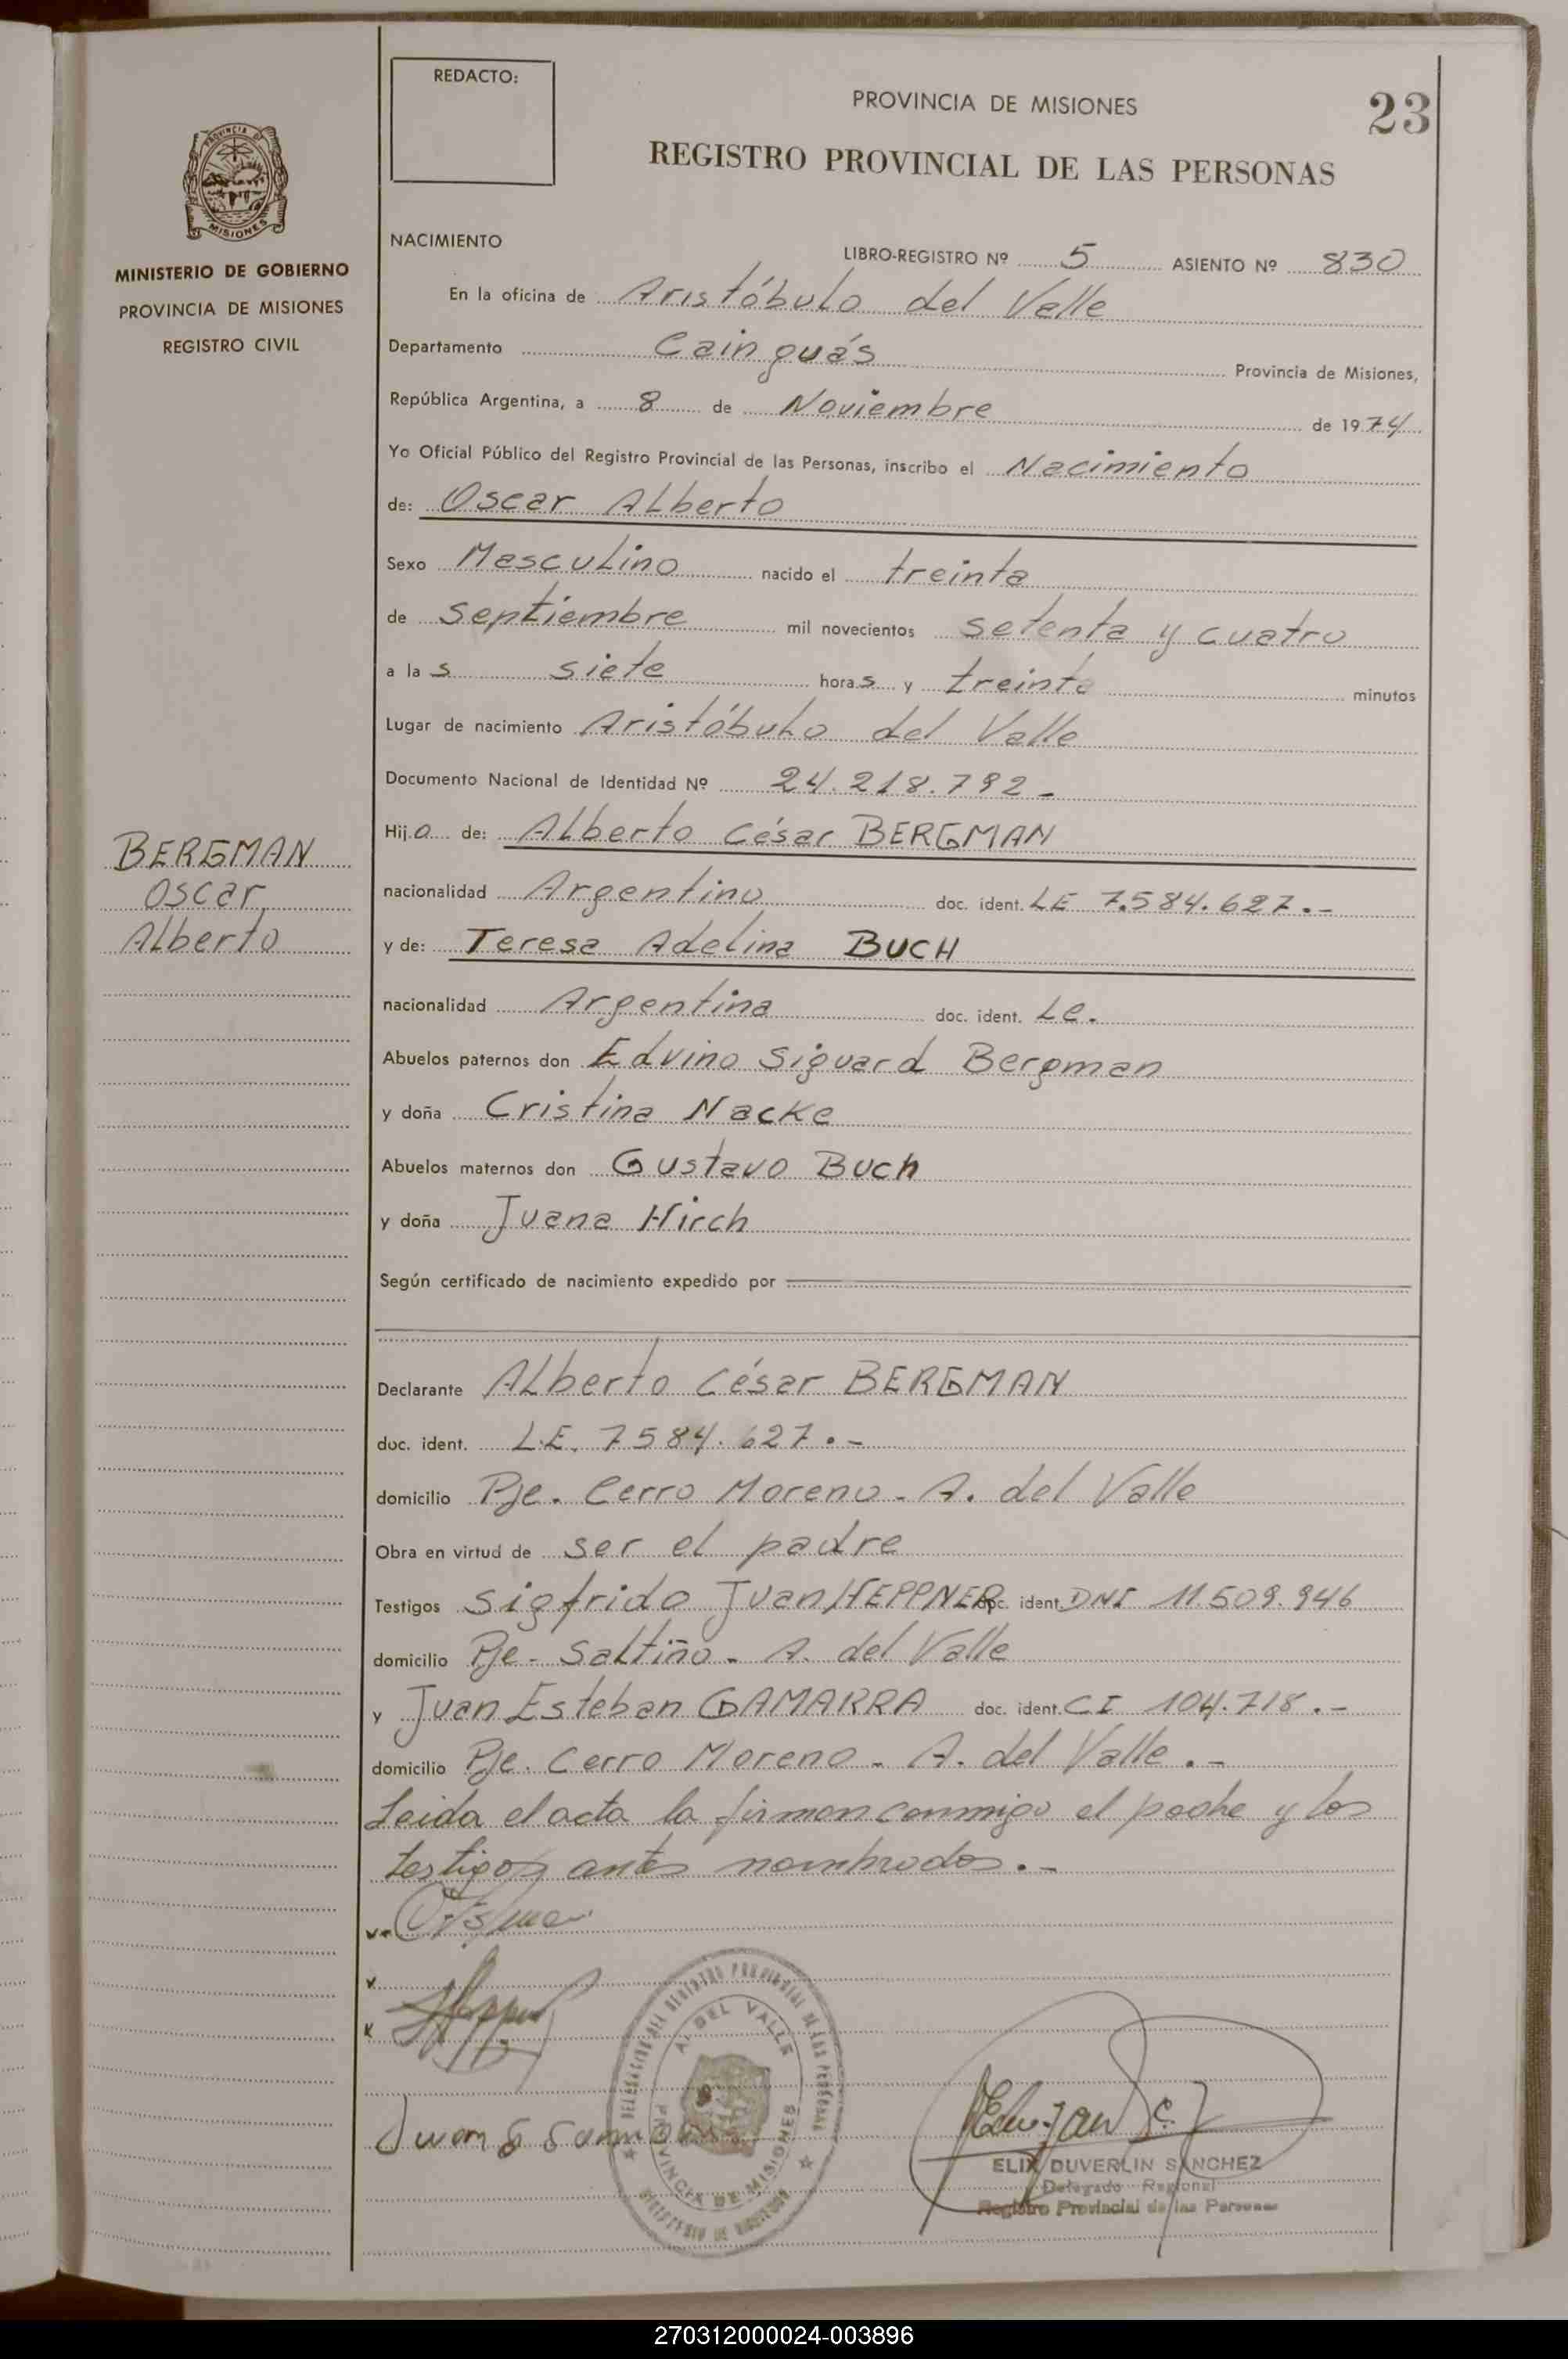 REDACTO:
PROVINCIA DE MISIONES
23
REGISTRO PROVINCIAL DE LAS PERSONAS
PROVINCIA DE
MISIONES
MINISTERIO DE GOBIERNO
PROVINCIA DE MISIONES
REGISTRO CIVIL
NACIMIENTO
LIBRO-REGISTRO Nº 5 ASIENTO Nº 830
En la oficina de Aristóbulo del Valle
Departamento Cainguás Provincia de Misiones,
República Argentina, a 8 de Noviembre de 1974
Yo Oficial Público del Registro Provincial de las Personas, inscribo el Nacimiento
de: Oscar Alberto
Sexo Masculino nacido el treinta
de septiembre mil novecientos setenta y cuatro
a las siete horas y treinta minutos
Lugar de nacimiento Aristóbulo del Valle
Documento Nacional de Identidad Nº 24.218.792-
Hijo de: Alberto César BERGMAN
BERGMAN
Oscar
Alberto
nacionalidad Argentino doc. ident. LE 7.584.627.-
y de: Teresa Adelina BUCH
nacionalidad Argentina doc. ident. LC.
Abuelos paternos don Edvino Siguard Bergman
y doña Cristina Nacke
Abuelos maternos don Gustavo Buch
y doña Juana Hirch
Según certificado de nacimiento expedido por
Declarante Alberto César BERGMAN
doc. ident. L.E. 7584.627.-
domicilio Pje. Cerro Moreno - A. del Valle
Obra en virtud de ser el padre
Testigos Sigfrido Juan HEPPNER doc. ident. DNI 11.509.946
domicilio Pje - Saltiño - A. del Valle
y Juan Esteban GAMARRA doc. ident. CI 104.718.-
domicilio Pje. Cerro Moreno - A. del Valle.-
Leida el acta la firman conmigo el padre y los
testigos antes nombrados.-
DELEGACION DEL REGISTRO PROVINCIAL DE LAS PERSONAS
A. DEL VALLE
PROVINCIA DE MISIONES
MINISTERIO DE GOBIERNO
ELIX DUVERLIN SANCHEZ
Delegado Regional
Registro Provincial de las Personas
270312000024-003896